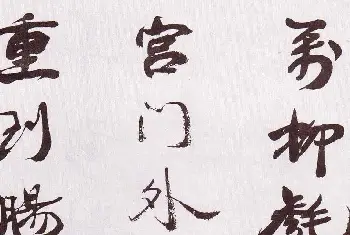 萬柳
宫门外
重到腸